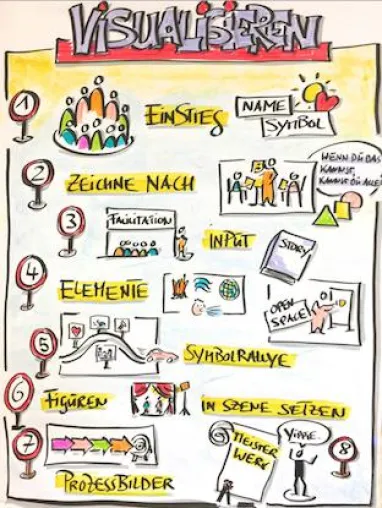 VISUALISIEREN
1 EINSTIEG NAME
SYMBOL
2 ZEICHNE NACH
WENN DU DAS
KANNST,
KANNST DU ALLES
3 FACILITATION INPUT
STORY
4 ELEMENTE
OPEN
SPACE
5 SYMBOLRALLYE
6 FIGUREN IN SZENE SETZEN
7 PROZESSBILDER
MEISTER
WERK
YIPPIE
8